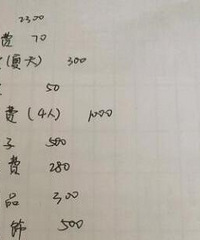 2300
费 70
(夏天) 300
50
费(4人) 1000
子 500
费 280
品 300
饰 500